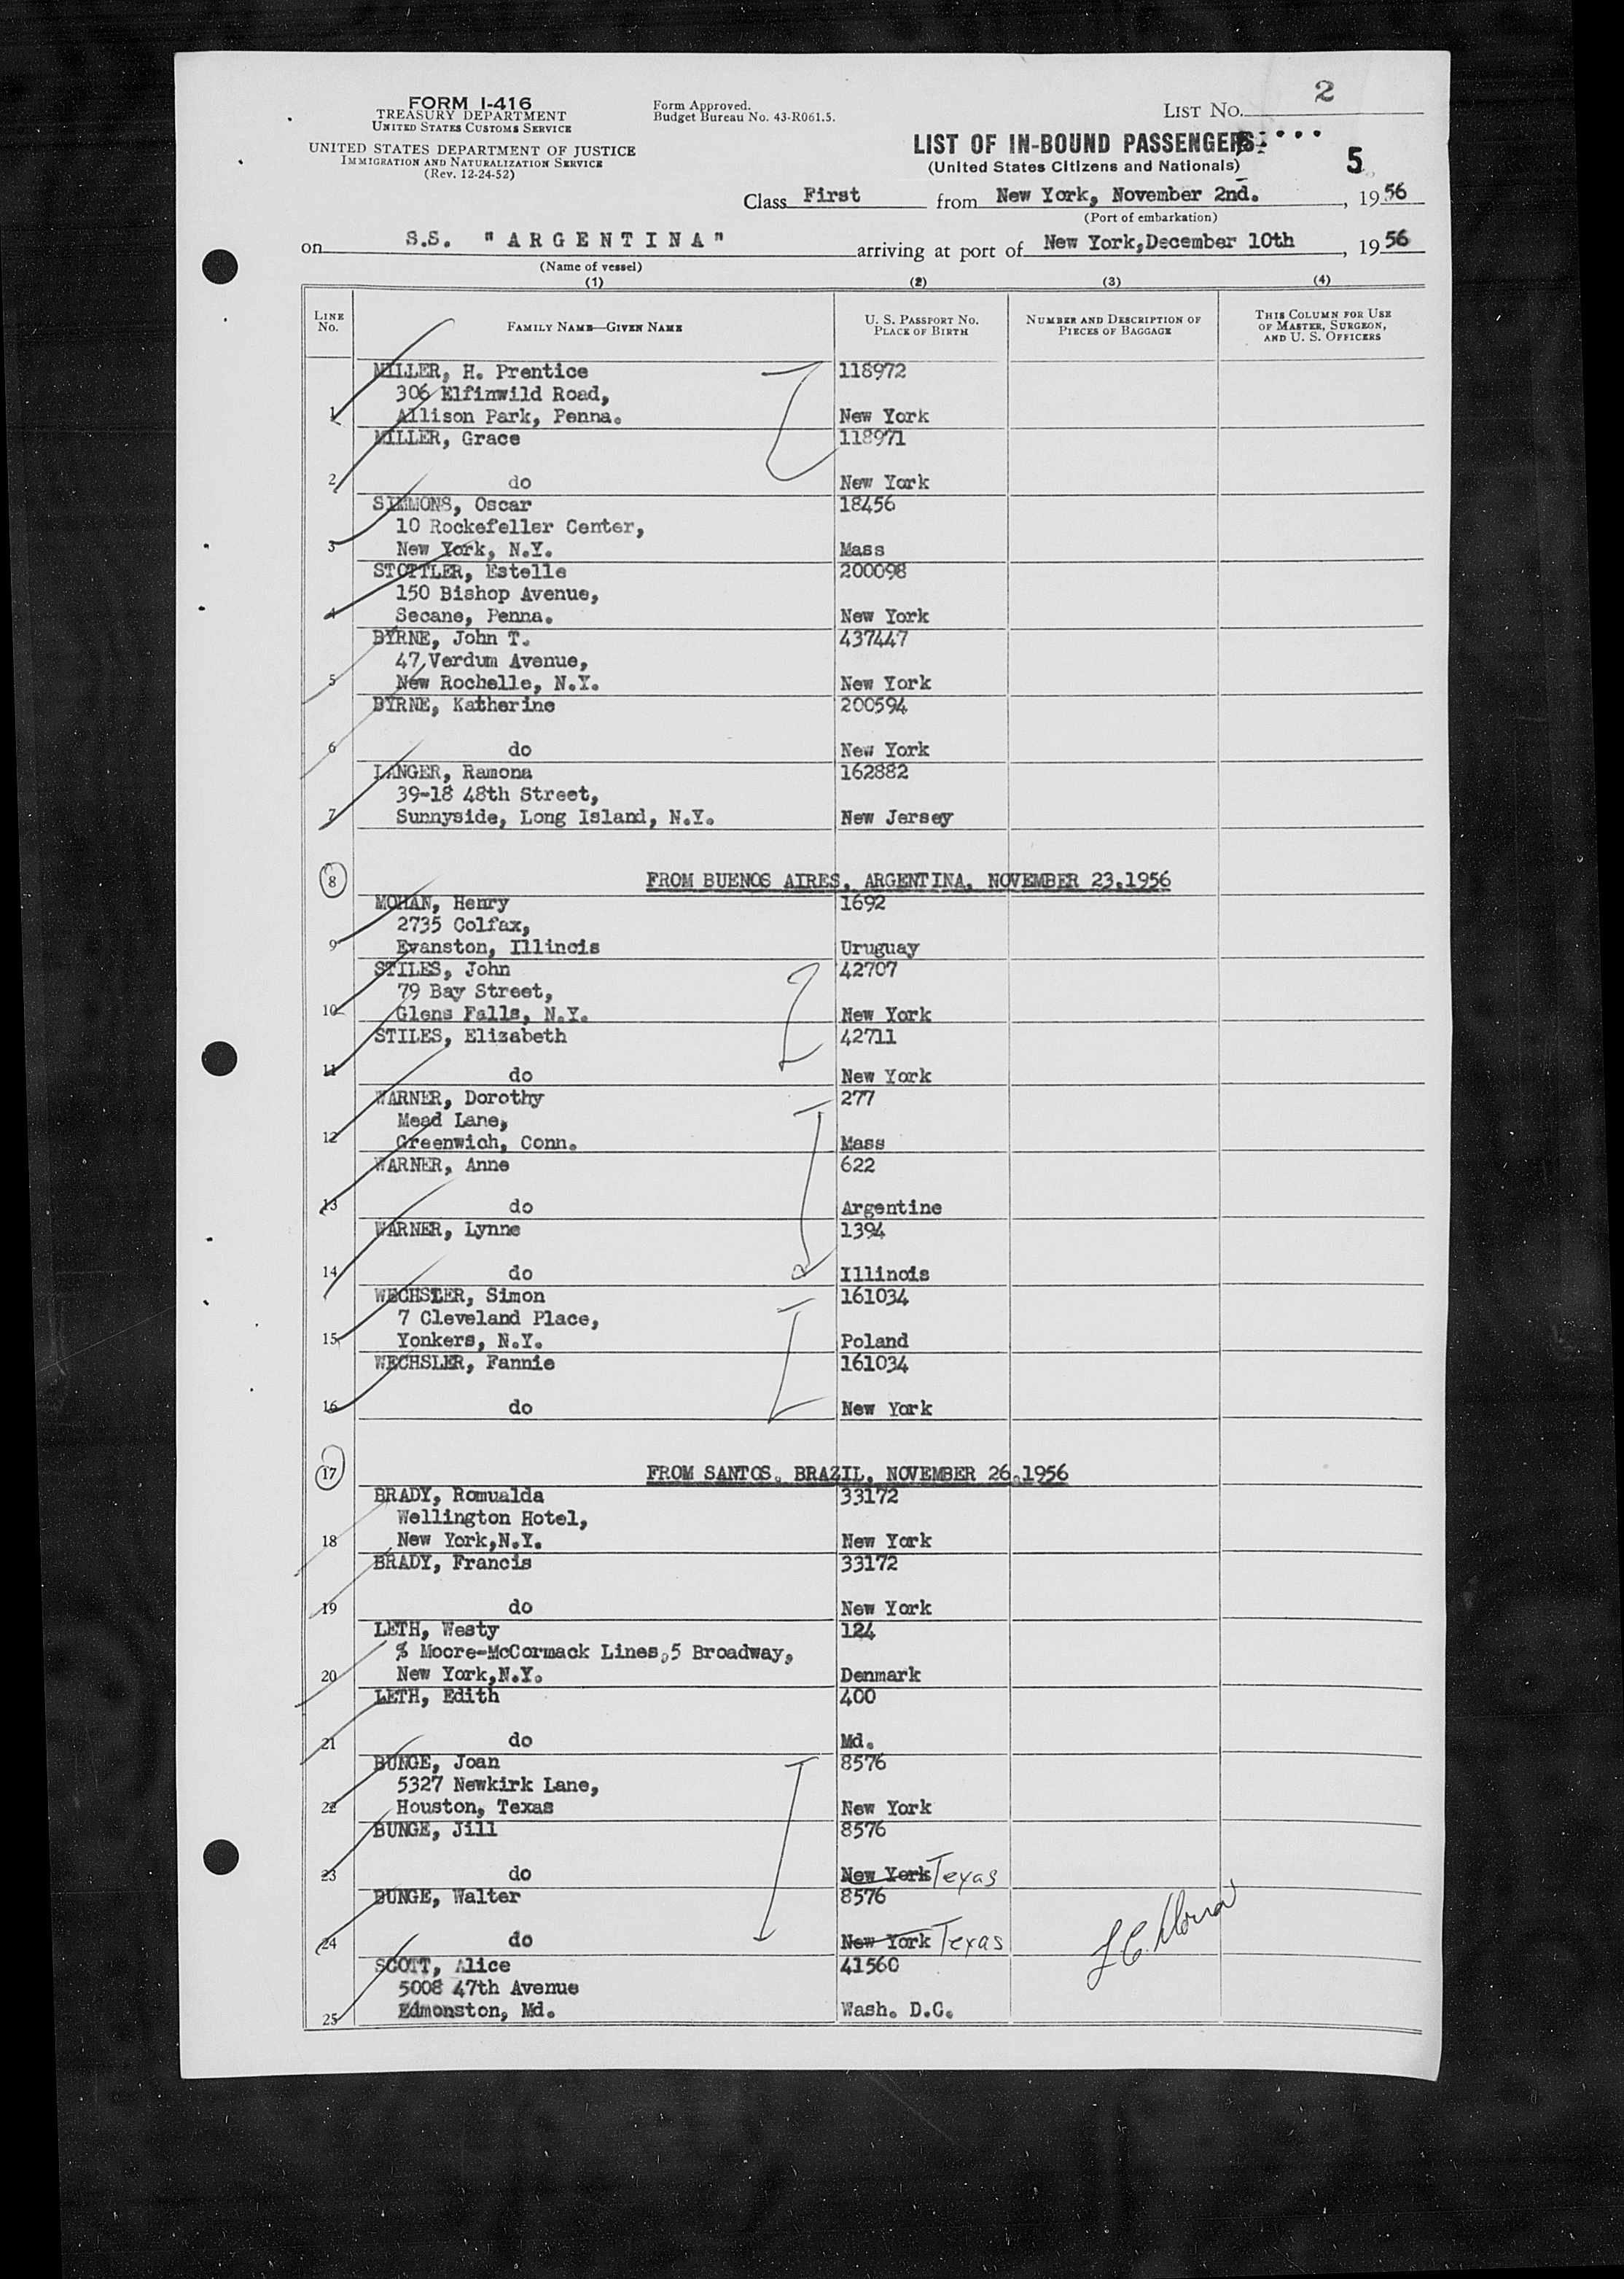 FORM I-416
TREASURY DEPARTMENT
UNITED STATES CUSTOMS SERVICE
UNITED STATES DEPARTMENT OF JUSTICE
IMMIGRATION AND NATURALIZATION SERVICE
(Rev. 12-24-52)
Form Approved.
Budget Bureau No. 43-R061.5.
LIST NO. 2
LIST OF IN-BOUND PASSENGERS
(United States Citizens and Nationals)
5
Class First from New York, November 2nd., 1956
(Port of embarkation)
on S.S. "ARGENTINA" arriving at port of New York, December 10th, 1956
(Name of vessel)
(1) (2) (3) (4)
LINE NO. FAMILY NAME—GIVEN NAME U. S. PASSPORT NO. PLACE OF BIRTH NUMBER AND DESCRIPTION OF PIECES OF BAGGAGE THIS COLUMN FOR USE OF MASTER, SURGEON, AND U. S. OFFICERS
MILLER, H. Prentice 118972
306 Elfinwild Road,
1 Allison Park, Penna. New York
MILLER, Grace 118971
2 do New York
SIMMONS, Oscar 18456
10 Rockefeller Center,
3 New York, N.Y. Mass
STOTTLER, Estelle 200098
150 Bishop Avenue,
4 Secane, Penna. New York
BYRNE, John T. 437447
47 Verdum Avenue,
5 New Rochelle, N.Y. New York
BYRNE, Katherine 200594
6 do New York
LANGER, Ramona 162882
39-18 48th Street,
7 Sunnyside, Long Island, N.Y. New Jersey
8 FROM BUENOS AIRES, ARGENTINA, NOVEMBER 23, 1956
MOHAN, Henry 1692
2735 Colfax,
9 Evanston, Illinois Uruguay
STILES, John 42707
79 Bay Street,
10 Glens Falls, N.Y. New York
STILES, Elizabeth 42711
11 do New York
WARNER, Dorothy 277
Mead Lane,
12 Greenwich, Conn. Mass
WARNER, Anne 622
13 do Argentine
WARNER, Lynne 1394
14 do Illinois
WECHSLER, Simon 161034
7 Cleveland Place,
15 Yonkers, N.Y. Poland
WECHSLER, Fannie 161034
16 do New York
17 FROM SANTOS, BRAZIL, NOVEMBER 26, 1956
BRADY, Romualda 33172
Wellington Hotel,
18 New York, N.Y. New York
BRADY, Francis 33172
19 do New York
LETH, Westy 124
% Moore-McCormack Lines, 5 Broadway,
20 New York, N.Y. Denmark
LETH, Edith 400
21 do Md.
BUNGE, Joan 8576
5327 Newkirk Lane,
22 Houston, Texas New York
BUNGE, Jill 8576
23 do New York Texas
BUNGE, Walter 8576
24 do New York Texas
SCOTT, Alice 41560
5008 47th Avenue
25 Edmonston, Md. Wash. D.C.